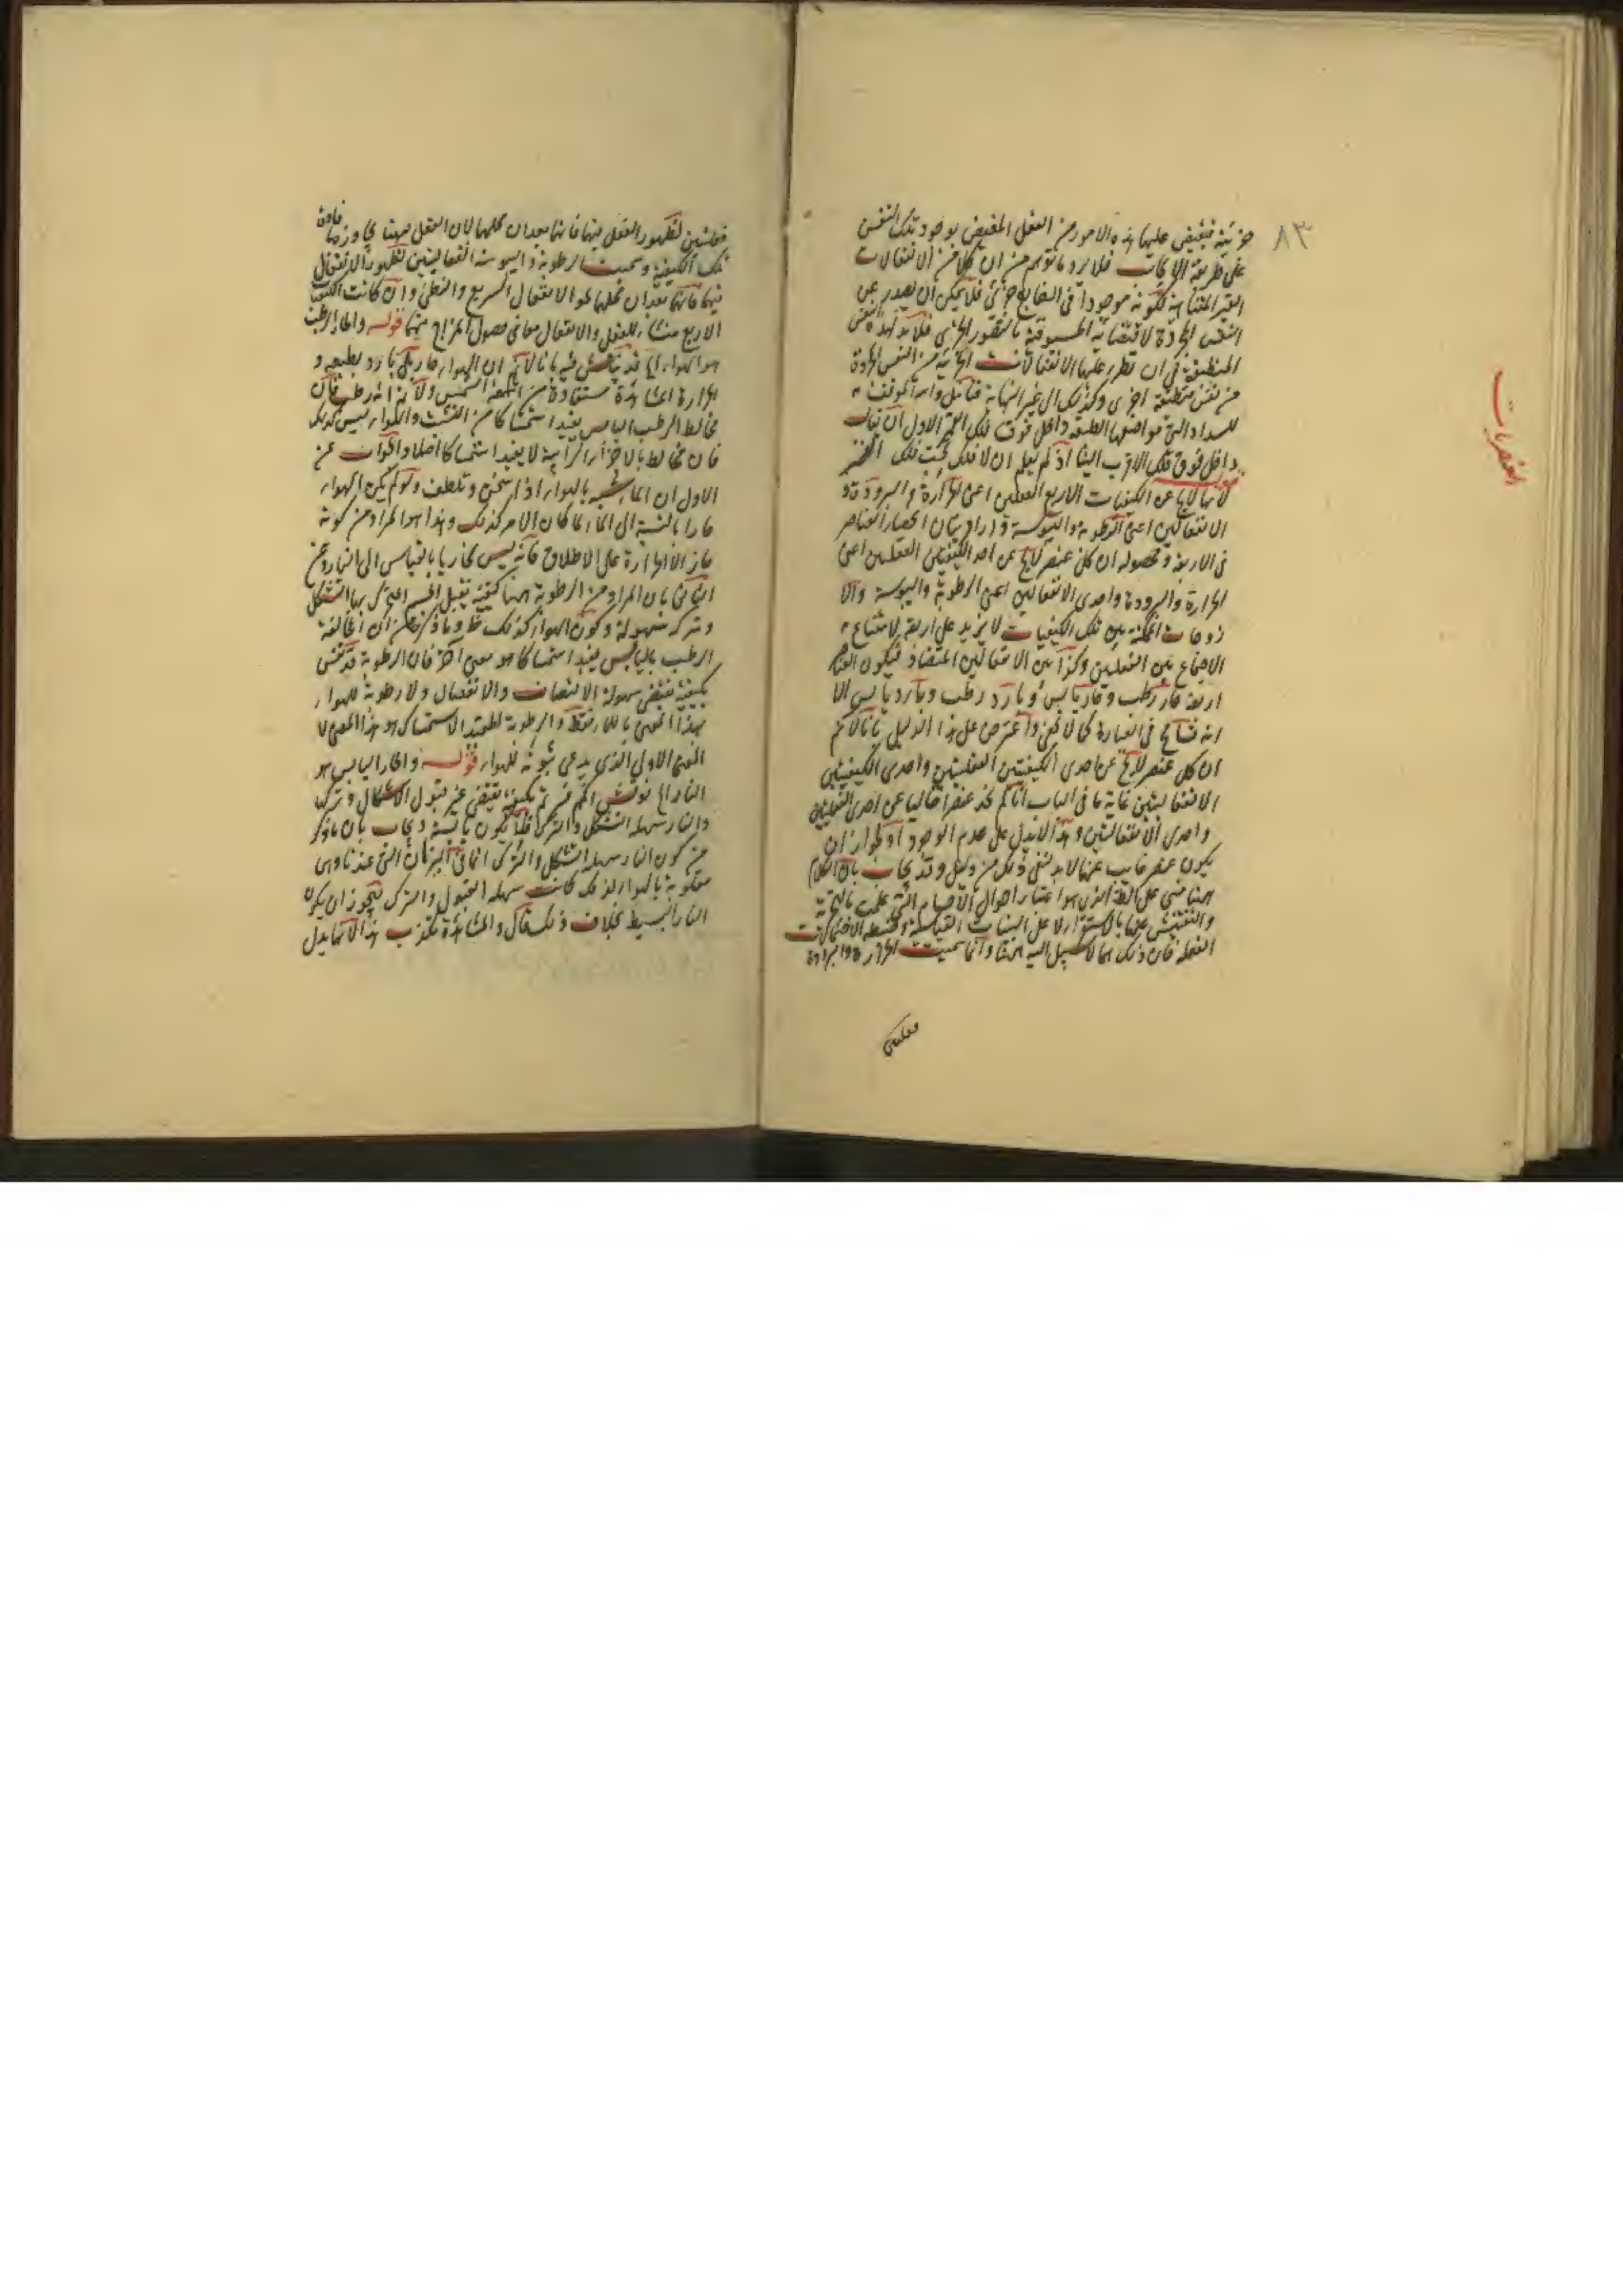 ٨٣
جزئية فيفيض عليها هذه الامور من العقل المفيض بوجود تلك النفس
على طريقة الايجاب فلا يرد ما توهم من ان كلا من الانفعالات
الغير المتناهية لكونه موجودا في الخارج جزئي فلا يمكن ان يصدر عن
النفس المجردة لاقتضائه المسبوقية بالتصور الجزئي فلا بد لهذه النفس
المنطبعة في ان تطرء عليها الانفعالات الجزئية من النفس المجردة
من نفس منطبعة اخرى وكذلك الى غير النهاية فتأمل والله الموفق
للسداد التي هو اصلها
داخل فوق فلك الاقرب الينا اذ لم يعلم ان لا فلك تحت فلك القمر
العنصريات
لانها لا يخ عن الكيفيات الاربع الفعليين اعنى الحرارة والبرودة و
الانفعاليين اعنى الرطوبة واليبوسة اراد بيان انحصار العناصر
في الاربعة ومحصوله ان كل عنصر لا يخ عن احد الكيفيتين الفعليين اعنى
الحرارة والبرودة واحدى الانفعاليين اعنى الرطوبة واليبوسة والا
زدوجات الممكنة بين تلك الكيفيات لا يزيد على اربعة لامتناع
الاجتماع بين الفعليين وكذا بين الانفعاليين المتضاد فيكون العناصر
اربعة حار رطب وحار يابس وبارد رطب وبارد يابس الا
انه تسامح في العبارة كما لا يخفى واعترض على هذا الدليل بانا لانم
ان كل عنصر لا يخ عن احدى الكيفيتين الفعليتين واحدى الكيفيتين
الانفعاليتين غاية ما في الباب انا لم نجد عنصرا خاليا عن احدى الفعليتين
واحدى الانفعاليتين وهذا لا يدل على عدم الوجود لجواز ان
يكون عنصر غايب عنا لا بد لنفى ذلك من دليل وقد يجاب بان الكلام
ههنا مبنى على الظن الذى هو اعتبار احوال الاجسام التي علمت بالتجربة
والتفتيش عنها بالاستقراء لا على البينات القياسية
العقلية فان ذلك مما لا سبيل اليه ههنا وانما سميت الحرارة والبرودة
فعليتين
فعليتين لظهور الفعل فيها فانهما يعدان محلهما لان الفعل فيهما يجاوزهما بافادة
تلك الكيفية وسميت الرطوبة واليبوسة انفعاليتين لظهور الانفعال
فيهما فانهما يعدان محلهما نحو الانفعال السريع والبطئ وان كانت الكيفيات
الاربع منشاء للفعل والانفعال معا في حصول المزاج منها قوله والحار الرطب
هو الهواء الخ قد يناقش فيه بانا لانم ان الهواء حار بل بارد بطبعه و
الحرارة المشاهدة مستفادة من اشعة الشمس ولانم انه رطب فان
مخالط الرطب اليابس يفيد استمساكا من التشتت والهواء ليس كذلك
فان مخالط بالاجزاء الترابية لا يفيد استمساكا اصلا والجواب عن
الاول ان الماء يشبه بالهواء اذا سخن وتلطف ولو لم يكن الهواء
حارا بالنسبة الى الماء لما كان الامر كذلك وهذا هو المراد من كونه
حارا لا الحرارة على الاطلاق فانه ليس بحار بالقياس الى النار وعن
الثاني بان المراد من الرطوبة ههنا كيفية تقبل الجسم المتحرك بها التشكل
وتركه بسهولة وكون الهواء كذلك ظ وما ذكرتم من ان مخالطة
الرطب باليابس يفيد استمساكا هو معنى آخر فان الرطوبة قد تفسر
بكيفية تقتضى سهولة الالتصاق والانفصال ولا رطوبة للهواء
بهذا المعنى بل للماء فقط والرطوبة المفيدة الاستمساك هو هذا المعنى لا
المعنى الاول الذي يدعى ثبوته للهواء قوله والحار اليابس هو
النار الخ نوقش انكم فسرتم بكيفية تقتضى عسر قبول الاشكال وتركها
والنار سهلة التشكل والترك فلا يكون يابسة ويجاب بان ما ذكر
من كون النار سهلة التشكل والترك انما في النيران التي عندنا وهي
مخلوطة بالهواء لذلك كانت سهلة القبول والترك فيجوز ان يكون
النار البسيط بخلاف ذلك فان قال والمشاهدة تكذب هذا لا تما يدل